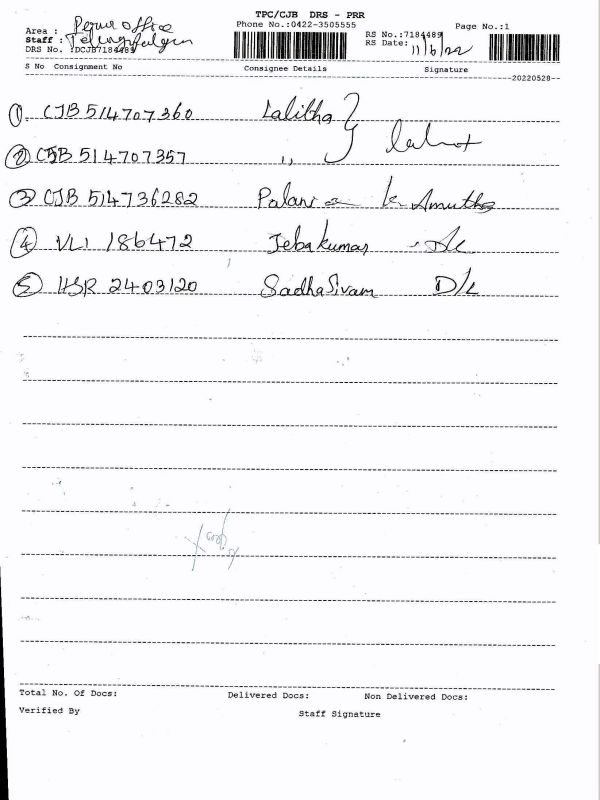 TPC/CJB DRS - PRR
Phone No.:0422-3505555
Page No.:1
Area : Perur office
Staff :
DRS No. :DCJB7184489
RS No.:7184489
RS Date: 11/6/22
S No Consignment No Consignee Details Signature
--20220528--
1. CJB 514707360 Lalitha
2 CJB 514707357 ,,
3 CJB 514736282 Palani K. Amutha
4 VL1 186472 Jebakumar
5 HSR 2403120 SadhaSivam D/c
Total No. Of Docs: Delivered Docs: Non Delivered Docs:
Verified By Staff Signature